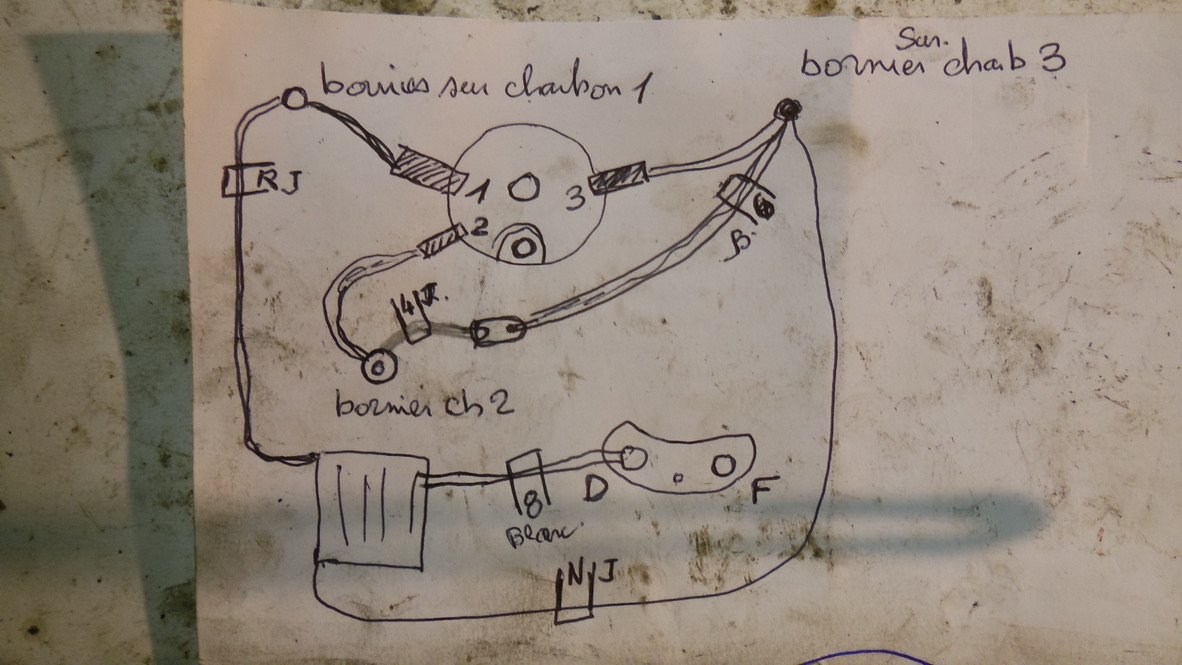 Sur.
bornier charb 3
bornier sur charbon 1
RJ
1
3
2
B.
4 J.
bornier ch 2
D
F
8
Blanc
N J